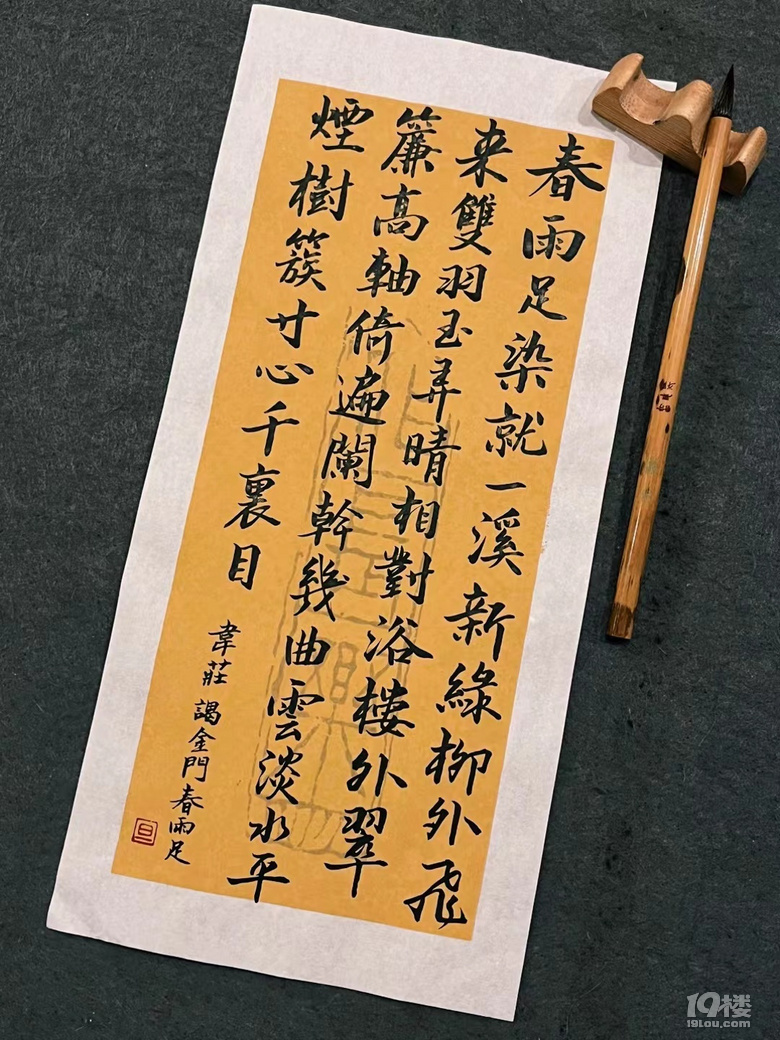 春雨足染就一溪新綠柳外飛
来雙羽玉弄晴相對浴楼外翠
簾高軸倚遍闌幹幾曲雲淡水平
煙樹簇寸心千裏目
韋莊 謁金門 春雨足
旦
19楼
19lou.com